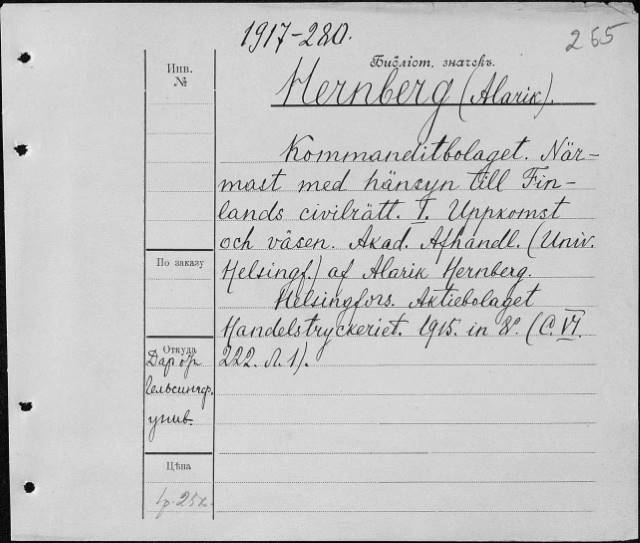 1917-280.
265
Библіот. значекъ.
Инв.
№
Hernberg (Alarik).
Kommanditbolaget. När-
mast med hänsyn till Fin-
lands civilrätt. I. Uppkomst
och väsen. Akad. Afhandl. (Univ.
По заказу
Helsingf.) af Alarik Hernberg.
Helsingfors. Aktiebolaget
Handelstryckeriet. 1915. in 8º. (C. VI.
Откуда
222. л. 1).
Даръ отъ
Гельсингф.
унив.
Цѣна
1р. 25к.